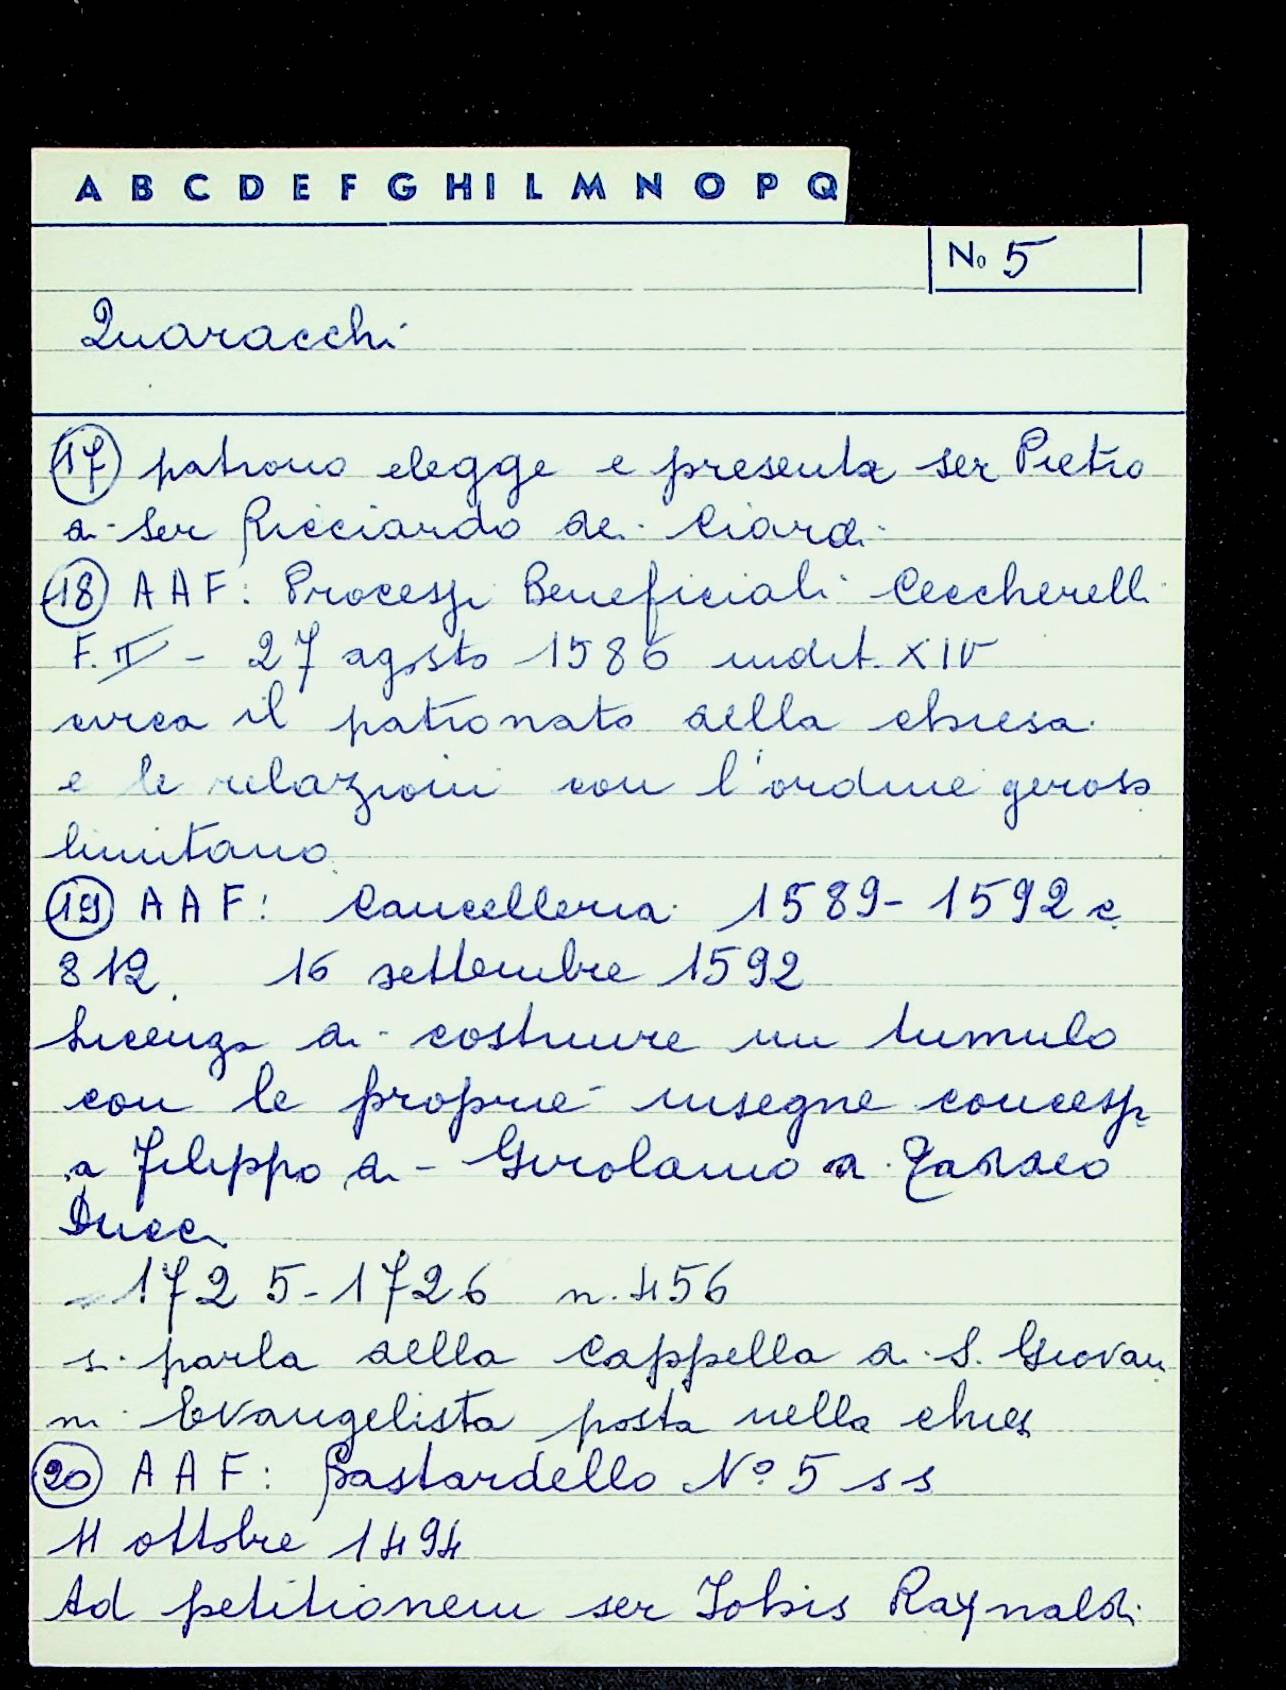 A B C D E F G H I L M N O P Q
No 5
Quaracchi
17 patrono elegge e presenta ser Pietro
di ser Ricciardo de Ciardi
18 AAF: Processi Beneficiali Ceccherelli
F. II - 27 agosto 1586 indit. XIV
circa il patronato della chiesa
e le relazioni con l'ordine geroso
limitano
19 AAF: Cancelleria 1589-1592 c
812. 16 settembre 1592
Licenza di costruire un tumulo
con le proprie insegne concessa
a Filippo di Girolamo di Taddeo
Ducci
- 1725-1726 n. 456
si parla della Cappella di S. Giovan
ni Evangelista posta nella chiesa
20 AAF: Bastardello N° 5 ss
11 ottobre 1494
Ad petitionem ser Iohis Raynaldi